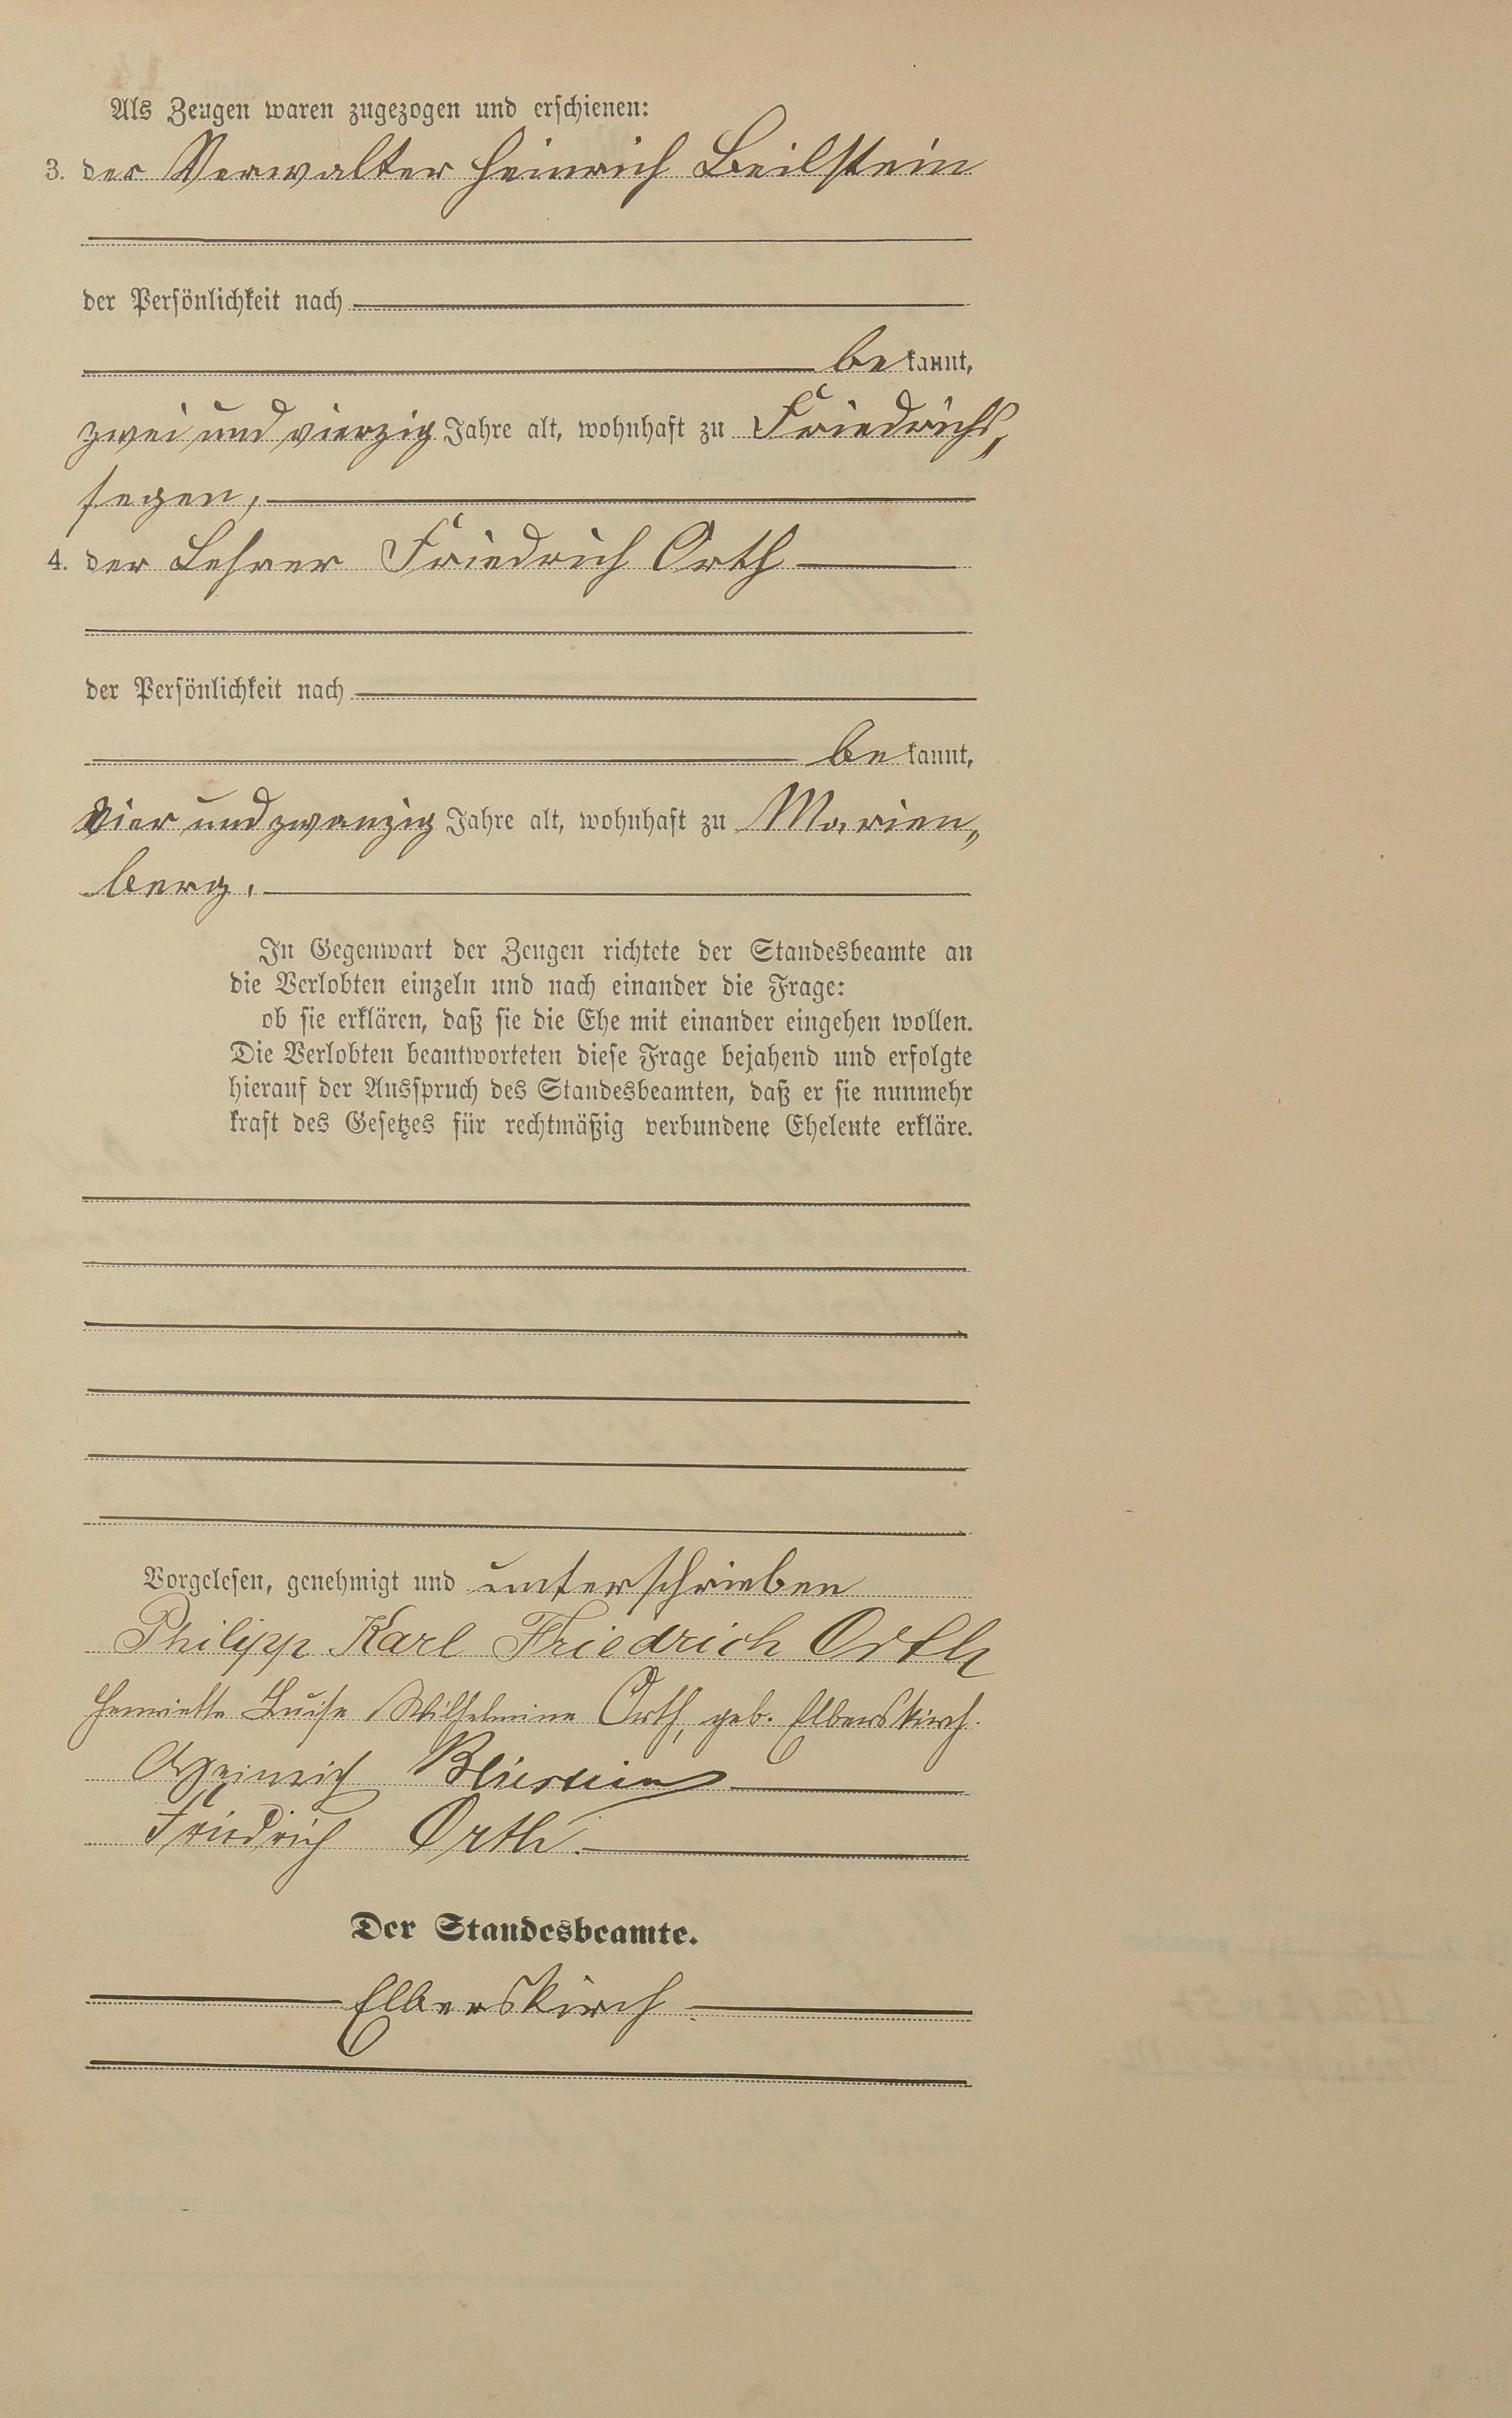 Als Zeugen waren zugezogen und erschienen:
3. der Verwalter Heinrich Beilstein
der Persönlichkeit nach
bekannt,
zwei und vierzig Jahre alt, wohnhaft zu Friedrichs„
segen,
4. der Lehrer Friedrich Orth
der Persönlichkeit nach
bekannt,
vier und zwanzig Jahre alt, wohnhaft zu Marien„
berg.
In Gegenwart der Zeugen richtete der Standesbeamte an
die Verlobten einzeln und nach einander die Frage:
ob sie erklären, daß sie die Ehe mit einander eingehen wollen.
Die Verlobten beantworteten diese Frage bejahend und erfolgte
hierauf der Ausspruch des Standesbeamten, daß er sie nunmehr
kraft des Gesetzes für rechtmäßig verbundene Eheleute erkläre.
Vorgelesen, genehmigt und unterschrieben
Philipp Karl Friedrich Orth
Henriette Luise Wilhelmine Orth, geb. Elberskirch.
Heinrich Beilstein
Friedrich Orth.
Der Standesbeamte.
Elberskirch